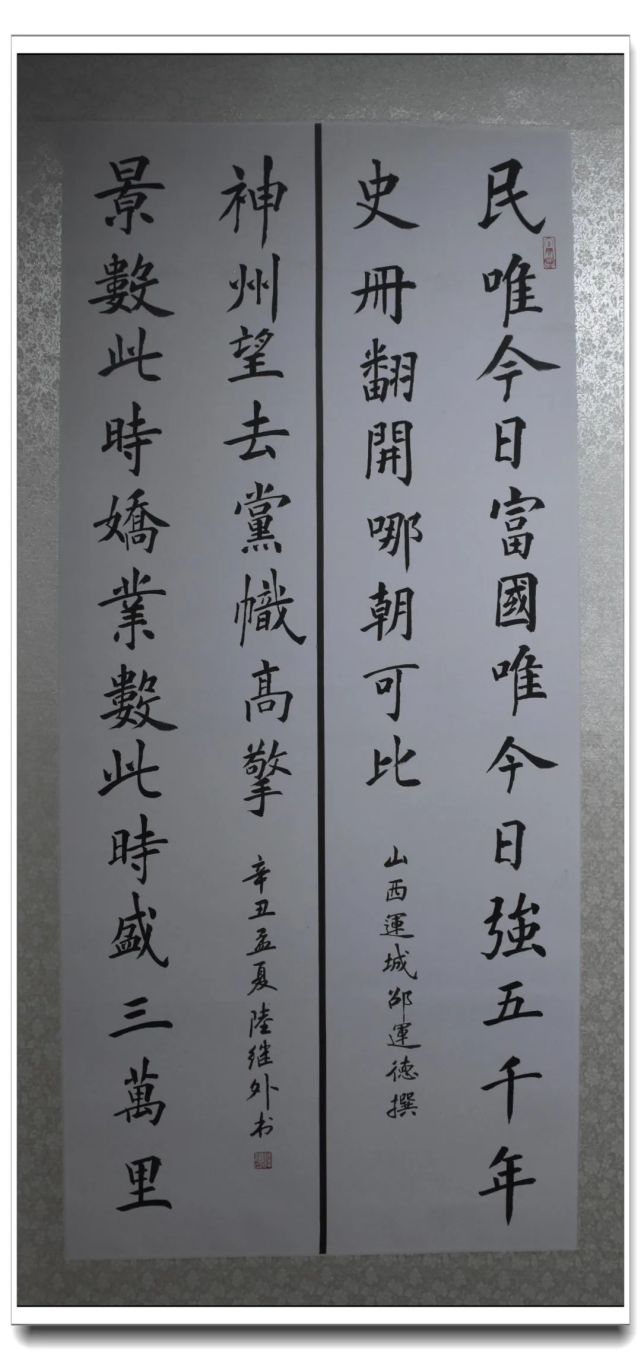 民唯今日富國唯今日強五千年
史冊翻開哪朝可比
山西運城邵運德撰
景數此時嬌業數此時盛三萬里
神州望去黨幟髙擎
辛丑孟夏陸继外书